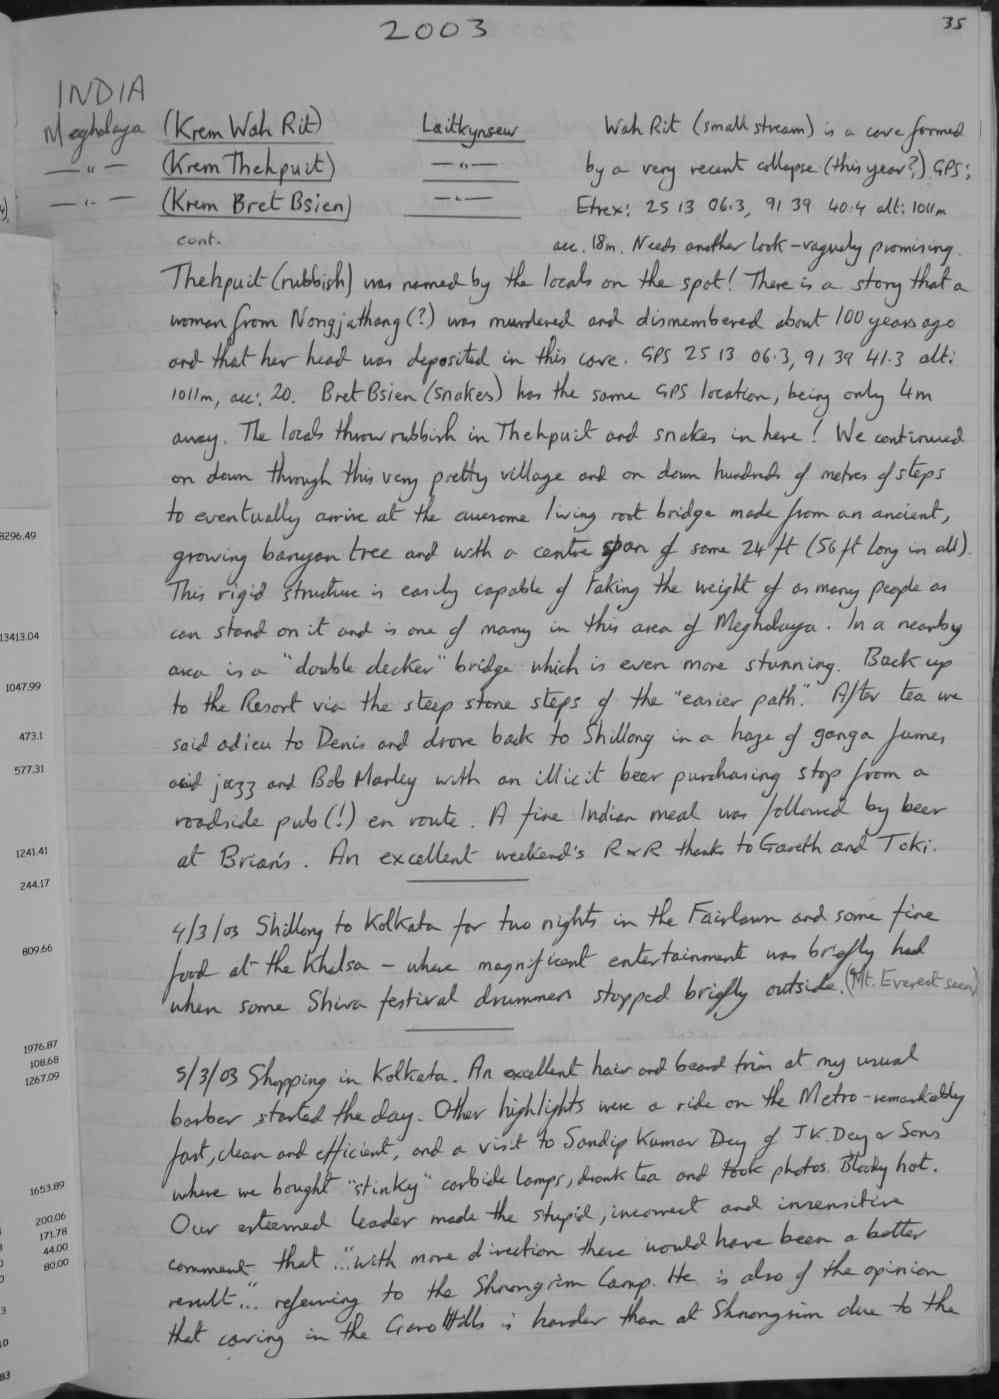 2003
35
INDIA
Meghalaya (Krem Wah Rit) Laitkynsew Wah Rit (small stream) is a cave formed
— " — (Krem Thehpuit) — " — by a very recent collapse (this year?) GPS:
— " — (Krem Bret Bsien) — " — Etrex: 25 13 06.3, 91 39 40.4 alt: 1011m
cont. acc. 18m. Needs another look – vaguely promising.
Thehpuit (rubbish) was named by the locals on the spot! There is a story that a
woman from Nongjathang(?) was murdered and dismembered about 100 years ago
and that her head was deposited in this cave. GPS 25 13 06.3, 91 39 41.3 alt:
1011m, acc: 20. Bret Bsien (snakes) has the same GPS location, being only 4m
away. The locals throw rubbish in Thehpuit and snakes in here! We continued
on down through this very pretty village and on down hundreds of metres of steps
to eventually arrive at the awesome living root bridge made from an ancient,
growing banyan tree and with a centre span of some 24 ft (56 ft long in all).
This rigid structure is easily capable of taking the weight of as many people as
can stand on it and is one of many in this area of Meghalaya. In a nearby
area is a "double decker" bridge which is even more stunning. Back up
to the Resort via the steep stone steps of the "easier path". After tea we
said adieu to Denis and drove back to Shillong in a haze of ganga fumes
acid jazz and Bob Marley with an illicit beer purchasing stop from a
roadside pub(!) en route. A fine Indian meal was followed by beer
at Brian's. An excellent weekend's R & R thanks to Gareth and Toki.
4/3/03 Shillong to Kolkata for two nights in the Fairlawn and some fine
food at the Khalsa – where magnificent entertainment was briefly had
when some Shiva festival drummers stopped briefly outside. (Mt. Everest seen)
5/3/03 Shopping in Kolkata. An excellent hair and beard trim at my usual
barber started the day. Other highlights were a ride on the Metro – remarkably
fast, clean and efficient, and a visit to Sandip Kumar Dey of J.K. Dey & Sons
where we bought "stinky" carbide lamps, drank tea and took photos. Bloody hot.
Our esteemed leader made the stupid, incorrect and insensitive
comment that "...with more direction there would have been a better
result..." referring to the Shnongrim Camp. He is also of the opinion
that caving in the Garo Hills is harder than at Shnongrim due to the
8296.49
13413.04
1047.99
473.1
577.31
1241.41
244.17
809.66
1976.87
108.68
1267.09
1653.89
200.06
171.78
44.00
80.00